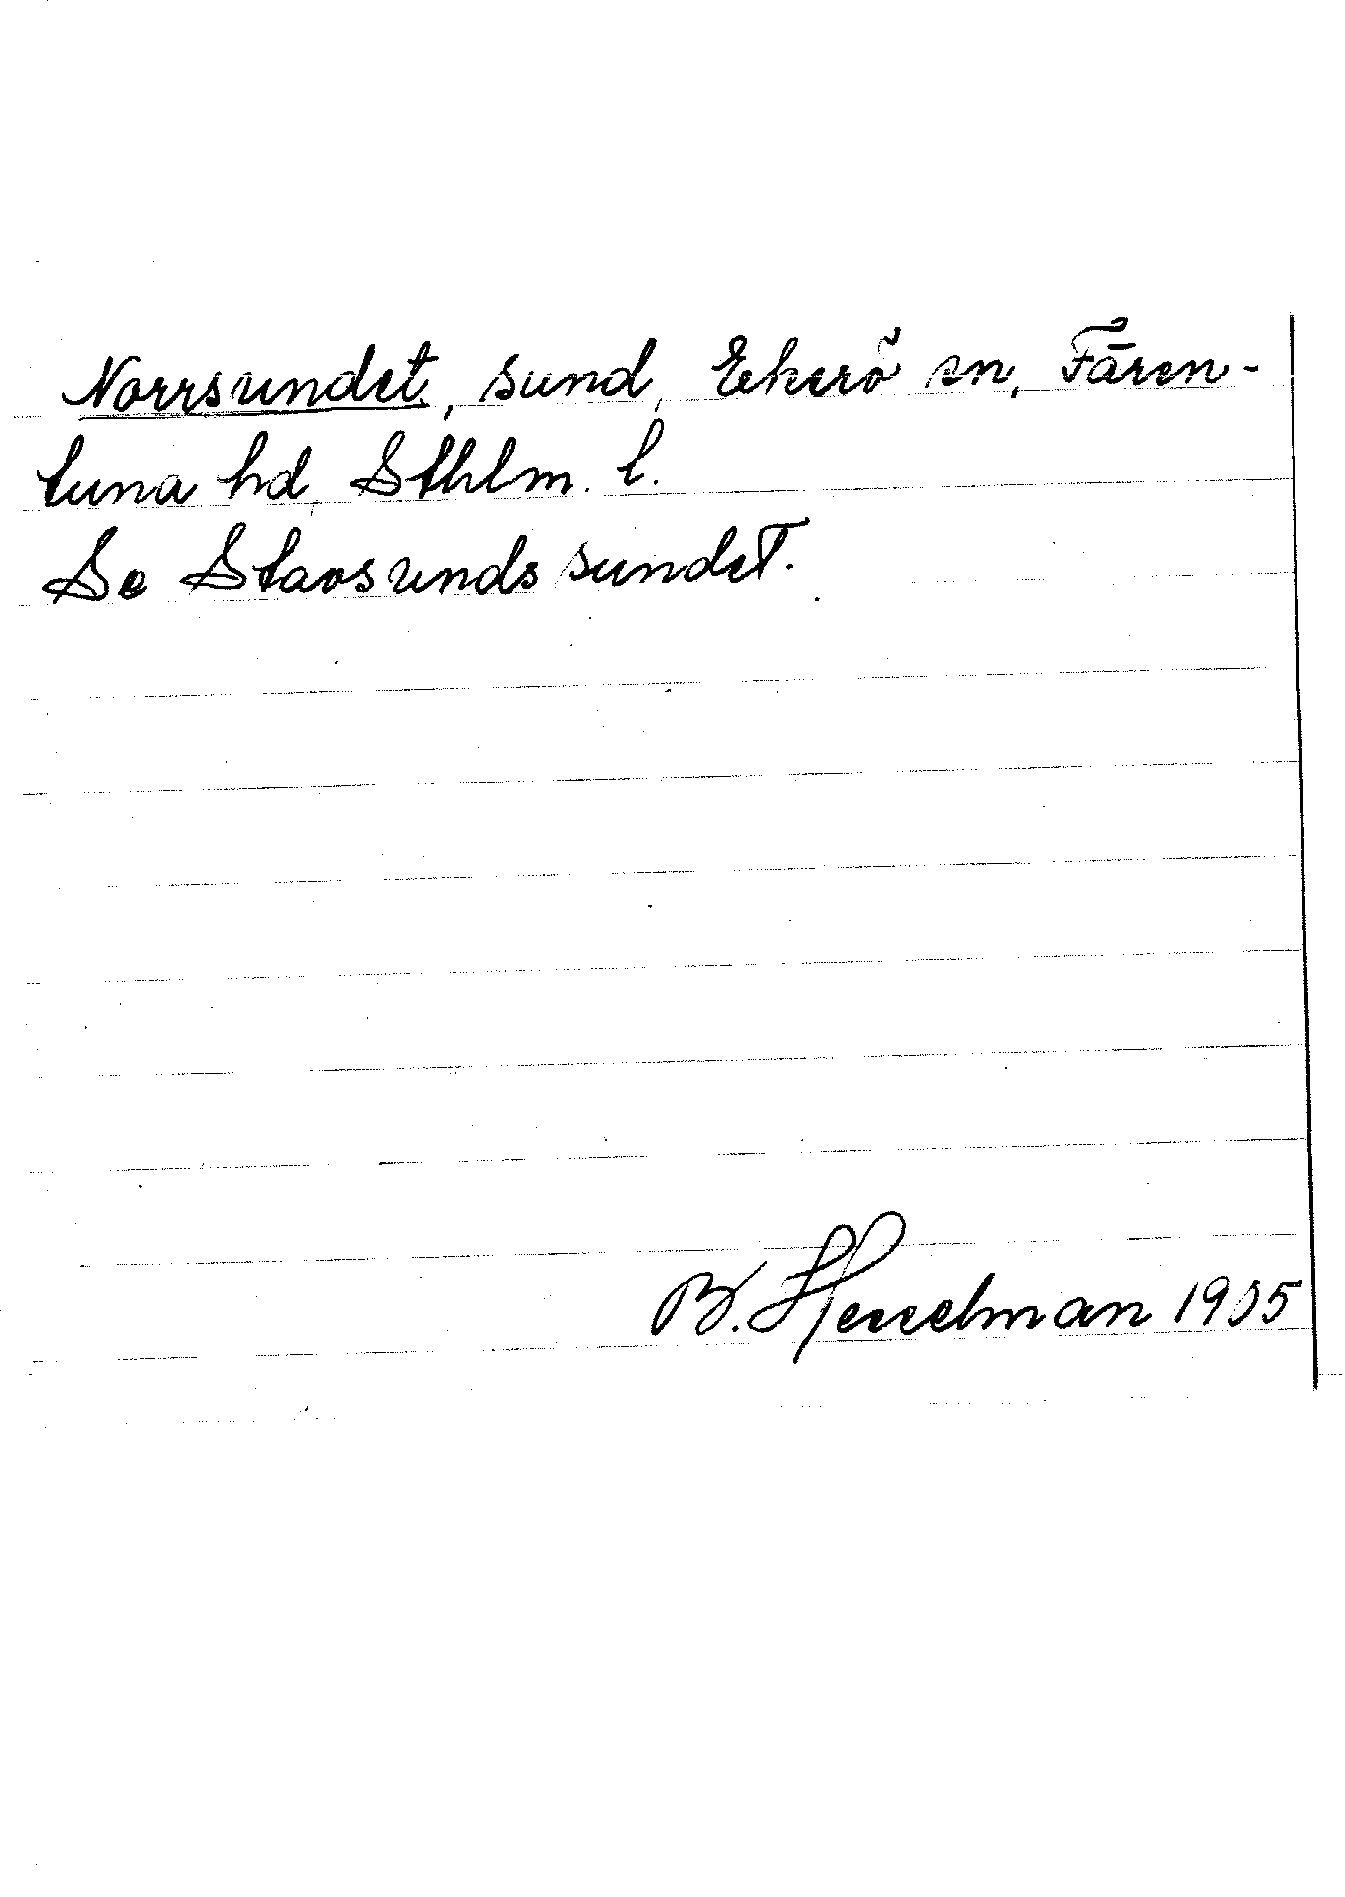 Norrsundet, sund, Ekerö sn, Fären-
tuna hd, Sthlm. l.
Se Stavsundssundet.
B. Hesselman 1935